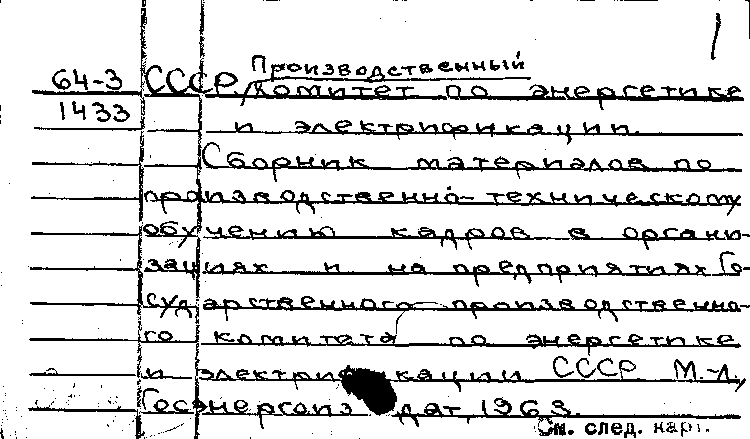 1
Производственный
64-3 СССР, Комитет по энергетике
1433 и электрификации.
Сборник материалов по
производственно-техническому
обучению кадров в органи-
зациях и на предприятиях Го-
сударственного производственно-
го комитета по энергетике
и электрификации СССР М.-Л.,
Госэнергоиздат, 1963.
См. след. карт.